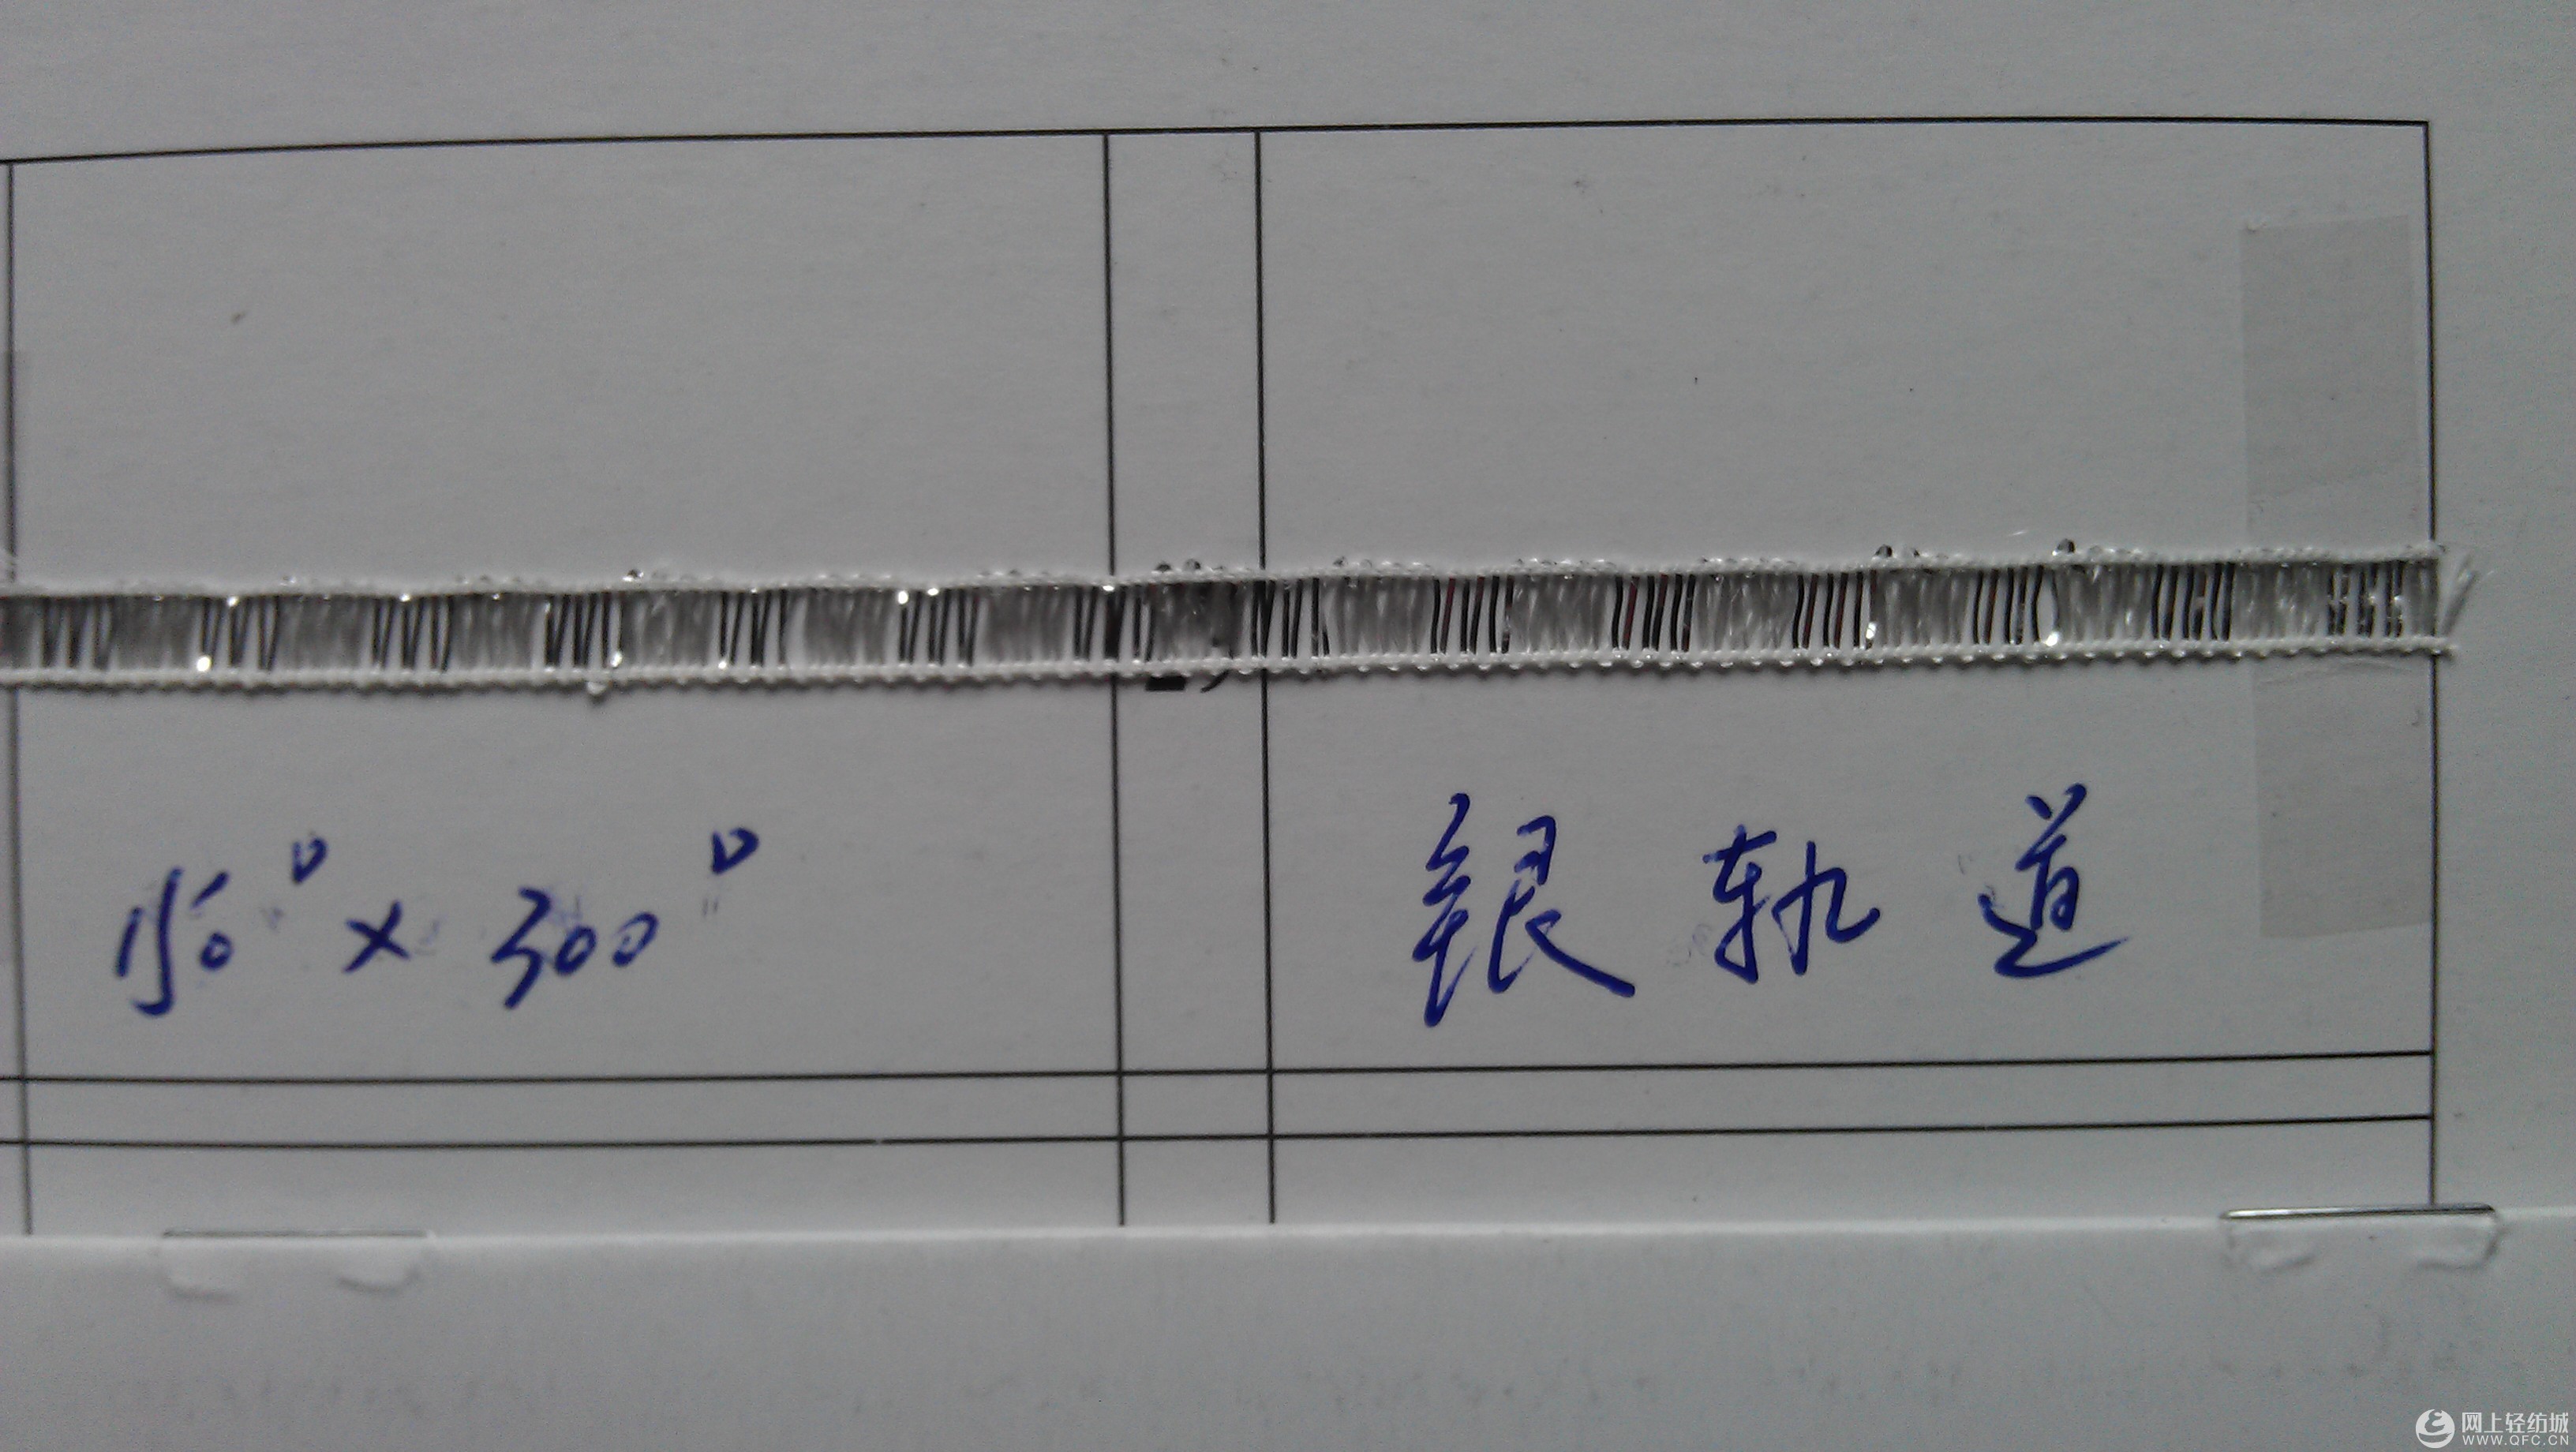 150D × 300D
银轨道
网上轻纺城
WWW.QFC.CN